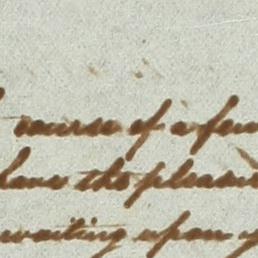 course of a few
have the pleasure
waiting upon y